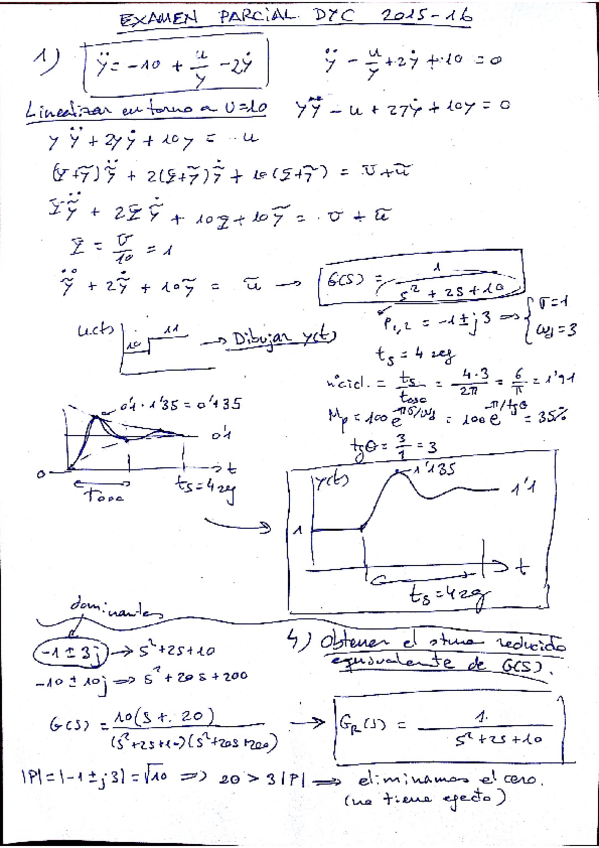 EXAMEN PARCIAL DYC 2015-16
1) ÿ = -10 + u/y - 2ẏ
ÿ - u/y + 2ẏ + 10 = 0
Linealizar en torno a U=10
yÿ - u + 2yẏ + 10y = 0
yÿ + 2yẏ + 10y = u
(Y+ỹ)ỹ̈ + 2(Y+ỹ)ỹ̇ + 10(Y+ỹ) = U+ũ
Yỹ̈ + 2Yỹ̇ + 10Y + 10ỹ = U + ũ
Y = U/10 = 1
ỹ̈ + 2ỹ̇ + 10ỹ = ũ → G(s) = 1/(s² + 2s + 10)
P1,2 = -1 ± j3 ⇒ { σ=1
ωd=3
u(t)
10
11
→ Dibujar y(t)
ts = 4 seg
nºcicl. = ts/tosc = 4·3/2π = 6/π = 1'91
Mp = 100e^(-πσ/ωd) = 100e^(-π/tgθ) = 35%
tgθ = 3/1 = 3
0'1 · 1'35 = 0'135
0'1
0
t
Tosc
ts=4seg
y(t)
1'135
1'1
1
t
ts=4seg
dominantes
-1 ± 3j → s²+2s+10
-10 ± 10j ⇒ s² + 20s + 200
4) Obtener el stma reducido
equivalente de G(s).
G(s) = 10(s + 20)/((s²+2s+10)(s²+20s+200)) → GR(s) = 1/(s²+2s+10)
|P| = |-1 ± j3| = √10 ⇒ 20 > 3|P| ⇒ eliminamos el cero.
(no tiene efecto)